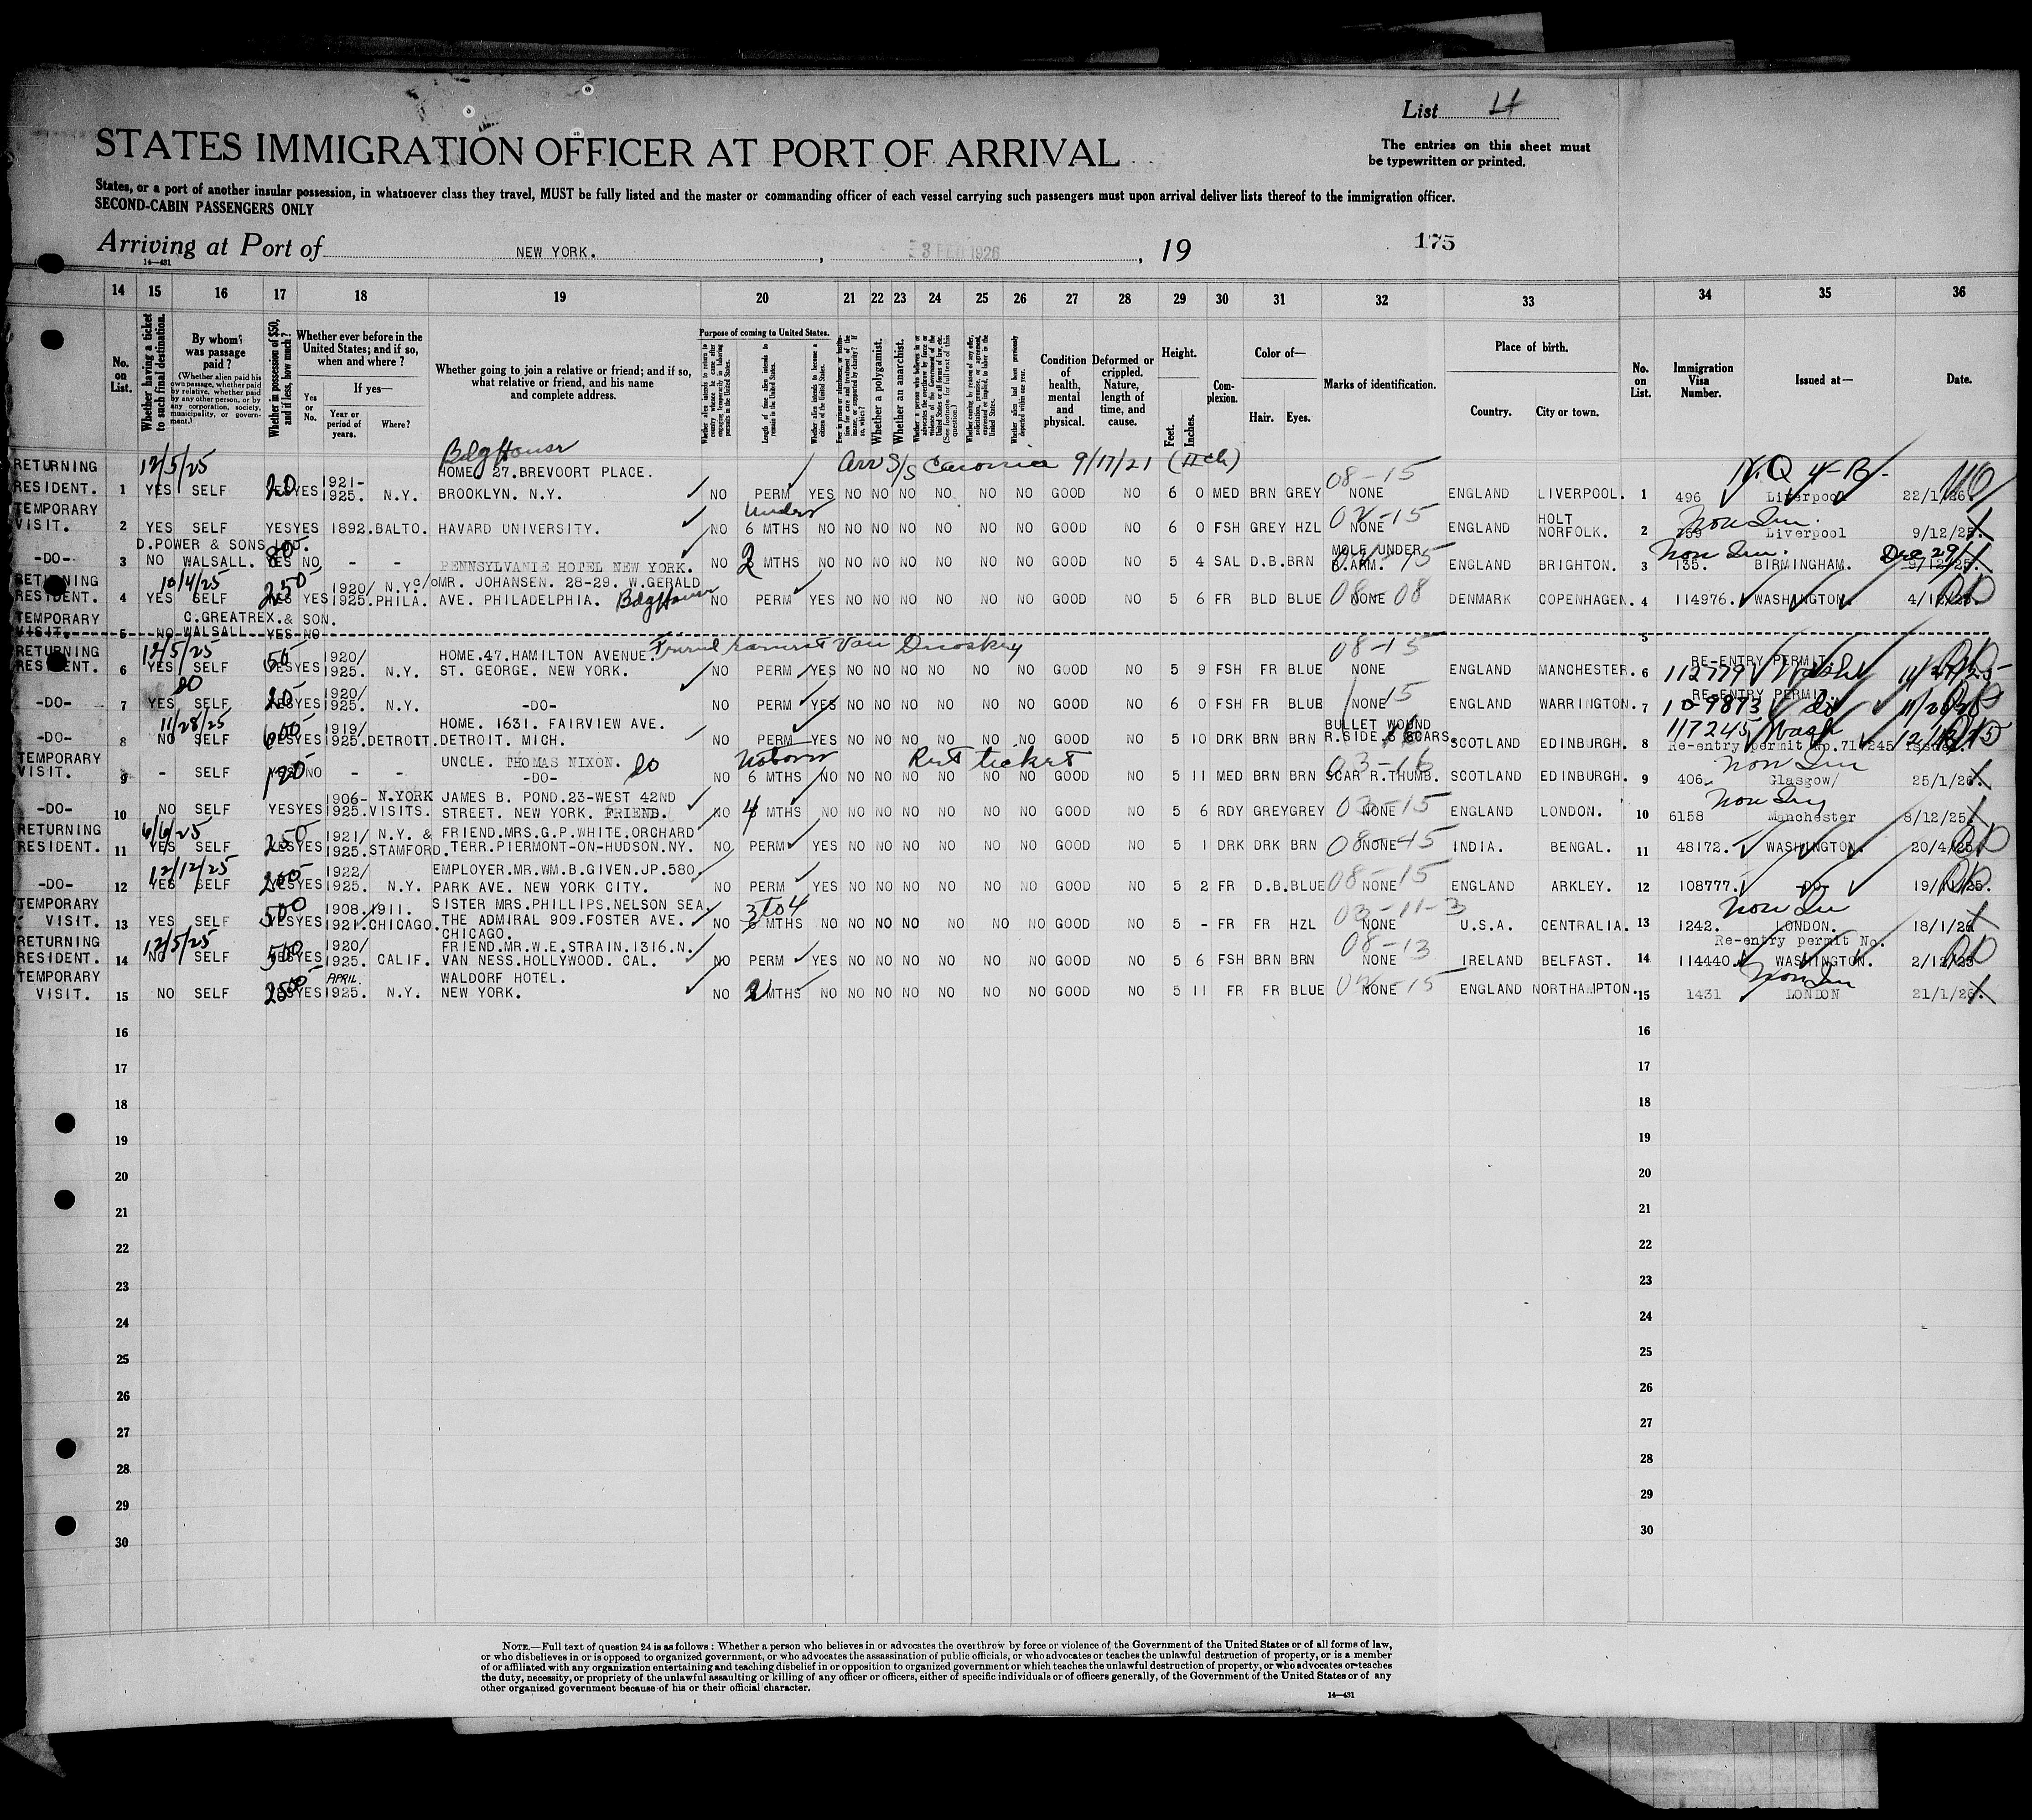 List 4
STATES IMMIGRATION OFFICER AT PORT OF ARRIVAL
The entries on this sheet must
be typewritten or printed.
States, or a port of another insular possession, in whatsoever class they travel, MUST be fully listed and the master or commanding officer of each vessel carrying such passengers must upon arrival deliver lists thereof to the immigration officer.
SECOND-CABIN PASSENGERS ONLY
Arriving at Port of NEW YORK. , 3 FEB 1926 , 19 175
14—431
14 15 16 17 18 19 20 21 22 23 24 25 26 27 28 29 30 31 32 33 34 35 36
No. on List.
Whether having a ticket to such final destination.
By whom was passage paid?
(Whether alien paid his own passage, whether paid by relative, whether paid by any other person, or by any corporation, society, municipality, or government.)
Whether in possession of $50, and if less, how much?
Whether ever before in the United States; and if so, when and where?
If yes—
Yes or No.
Year or period of years.
Where?
Whether going to join a relative or friend; and if so, what relative or friend, and his name and complete address.
Purpose of coming to United States.
Length of time alien intends to remain in the United States.
Whether alien intends to become a citizen of the United States.
Whether a polygamist.
Whether an anarchist.
Condition of health, mental and physical.
Deformed or crippled. Nature, length of time, and cause.
Height.
Feet. Inches.
Complexion.
Color of—
Hair. Eyes.
Marks of identification.
Place of birth.
Country. City or town.
No. on List.
Immigration Visa Number.
Issued at—
Date.
RETURNING 12/5/25 Bdg House HOME 27.BREVOORT PLACE. Arr S/S Caronia 9/17/21 (II ch) 08-15 N.Q 4-B.
RESIDENT. 1 YES SELF 20 YES YES 1921-1925. N.Y. BROOKLYN. N.Y. NO PERM YES NO NO NO NO NO NO GOOD NO 6 0 MED BRN GREY NONE ENGLAND LIVERPOOL. 1 496 Liverpool 22/1/26.
TEMPORARY under
VISIT. 2 YES SELF YES YES 1892. BALTO. HAVARD UNIVERSITY. NO 6 MTHS NO NO NO NO NO NO NO GOOD NO 6 0 FSH GREY HZL 02-15 NONE ENGLAND HOLT NORFOLK. 2 759 Non Im. Liverpool 9/12/25.
D.POWER & SONS LTD.
-DO- 3 NO WALSALL. 80 YES NO - - PENNSYLVANIE HOTEL NEW YORK. NO 2 MTHS NO NO NO NO NO NO NO GOOD NO 5 4 SAL D.B. BRN MOLE UNDER ENGLAND BRIGHTON. 3 135. Non Im. BIRMINGHAM. Dec 29/ 9/12/25.
RETURNING 10/4/25 c/o MR. JOHANSEN. 28-29. W.GERALD
RESIDENT. 4 YES SELF 250 YES YES 1920/1925. N.Y. PHILA. AVE. PHILADELPHIA. Bdg House NO PERM YES NO NO NO NO NO NO GOOD NO 5 6 FR BLD BLUE 08-08 NONE DENMARK COPENHAGEN. 4 114976. WASHINGTON.
TEMPORARY C.GREATREX.& SON.
VISIT. 5 NO WALSALL YES NO 5
RETURNING 12/5/25 HOME.47.HAMILTON AVENUE. Friend 08-15 RE-ENTRY PERMIT.
RESIDENT. 6 YES SELF 50 YES YES 1920/1925. N.Y. ST. GEORGE. NEW YORK. NO PERM YES NO NO NO NO NO NO GOOD NO 5 9 FSH FR BLUE NONE ENGLAND MANCHESTER. 6 112779 Wash
-DO- 7 do YES SELF YES YES 1920/1925. N.Y. -DO- NO PERM YES NO NO NO NO NO NO GOOD NO 6 0 FSH FR BLUE NONE 15 ENGLAND WARRINGTON. 7 RE-ENTRY PERMIT. 109873 do
11/28/25 HOME. 1631. FAIRVIEW AVE. BULLET WOUND
-DO- 8 NO SELF 600 YES YES 1919/1925. DETROIT. DETROIT. MICH. NO PERM YES NO NO NO NO NO NO GOOD NO 5 10 DRK BRN BRN R.SIDE.& SCARS. SCOTLAND EDINBURGH. 8 117245 Wash Re-entry permit No.
TEMPORARY UNCLE. THOMAS NIXON. do Ret ticket 03-16 Non Im
VISIT. 9 - SELF 120 NO - - -DO- NO 6 MTHS NO NO NO NO NO NO NO GOOD NO 5 11 MED BRN BRN SCAR R.THUMB. SCOTLAND EDINBURGH. 9 406 Glasgow/ 25/1/26.
-DO- 10 NO SELF YES YES 1906-1925. N.YORK VISITS. JAMES B. POND.23-WEST 42ND STREET. NEW YORK. FRIEND. NO 4 MTHS NO NO NO NO NO NO NO GOOD NO 5 6 RDY GREY GREY NONE ENGLAND LONDON. 10 6158 Non Im Manchester 8/12/25.
RETURNING 6/6/25 FRIEND.MRS.G.P.WHITE.ORCHARD
RESIDENT. 11 YES SELF 250 YES YES 1921/1925. N.Y. & STAMFORD. TERR.PIERMONT-ON-HUDSON.NY. NO PERM YES NO NO NO NO NO NO GOOD NO 5 1 DRK DRK BRN 08 NONE 45 INDIA. BENGAL. 11 48172. WASHINGTON. 20/4/25.
12/12/25 EMPLOYER.MR.WM.B.GIVEN.JP.580.
-DO- 12 YES SELF 200 YES YES 1922/1925. N.Y. PARK AVE. NEW YORK CITY. NO PERM YES NO NO NO NO NO NO GOOD NO 5 2 FR D.B. BLUE 08-15 NONE ENGLAND ARKLEY. 12 108777. -DO- 19/11/25.
TEMPORARY SISTER MRS.PHILLIPS.NELSON SEA. 3 to 4 03-11-3 Non Im
VISIT. 13 YES SELF 500 YES YES 1908.1911. 1921. CHICAGO. THE ADMIRAL 909.FOSTER AVE. CHICAGO. NO 6 MTHS NO NO NO NO NO NO NO GOOD NO 5 - FR FR HZL NONE U.S.A. CENTRALIA. 13 1242. LONDON. 18/1/26
RETURNING 12/5/25 FRIEND.MR.W.E.STRAIN.1316.N. 08-13 Re-entry permit No.
RESIDENT. 14 NO SELF 500 YES YES 1920/1925. CALIF. VAN NESS.HOLLYWOOD. CAL. NO PERM YES NO NO NO NO NO NO GOOD NO 5 6 FSH BRN BRN NONE IRELAND BELFAST. 14 114440. WASHINGTON. 2/12/25
TEMPORARY APRIL. WALDORF HOTEL. Non Im
VISIT. 15 NO SELF YES YES 1925. N.Y. NEW YORK. NO 2 MTHS NO NO NO NO NO NO NO GOOD NO 5 11 FR FR BLUE 02-15 NONE ENGLAND NORTHAMPTON. 15 1431 LONDON 21/1/26.
16 16
17 17
18 18
19 19
20 20
21 21
22 22
23 23
24 24
25 25
26 26
27 27
28 28
29 29
30 30
NOTE.—Full text of question 24 is as follows: Whether a person who believes in or advocates the overthrow by force or violence of the Government of the United States or of all forms of law,
or who disbelieves in or is opposed to organized government, or who advocates the assassination of public officials, or who advocates or teaches the unlawful destruction of property, or is a member
of or affiliated with any organization entertaining and teaching disbelief in or opposition to organized government or which teaches the unlawful destruction of property, or who advocates or teaches
the duty, necessity, or propriety of the unlawful assaulting or killing of any officer or officers, either of specific individuals or of officers generally, of the Government of the United States or of any
other organized government because of his or their official character.
14—431